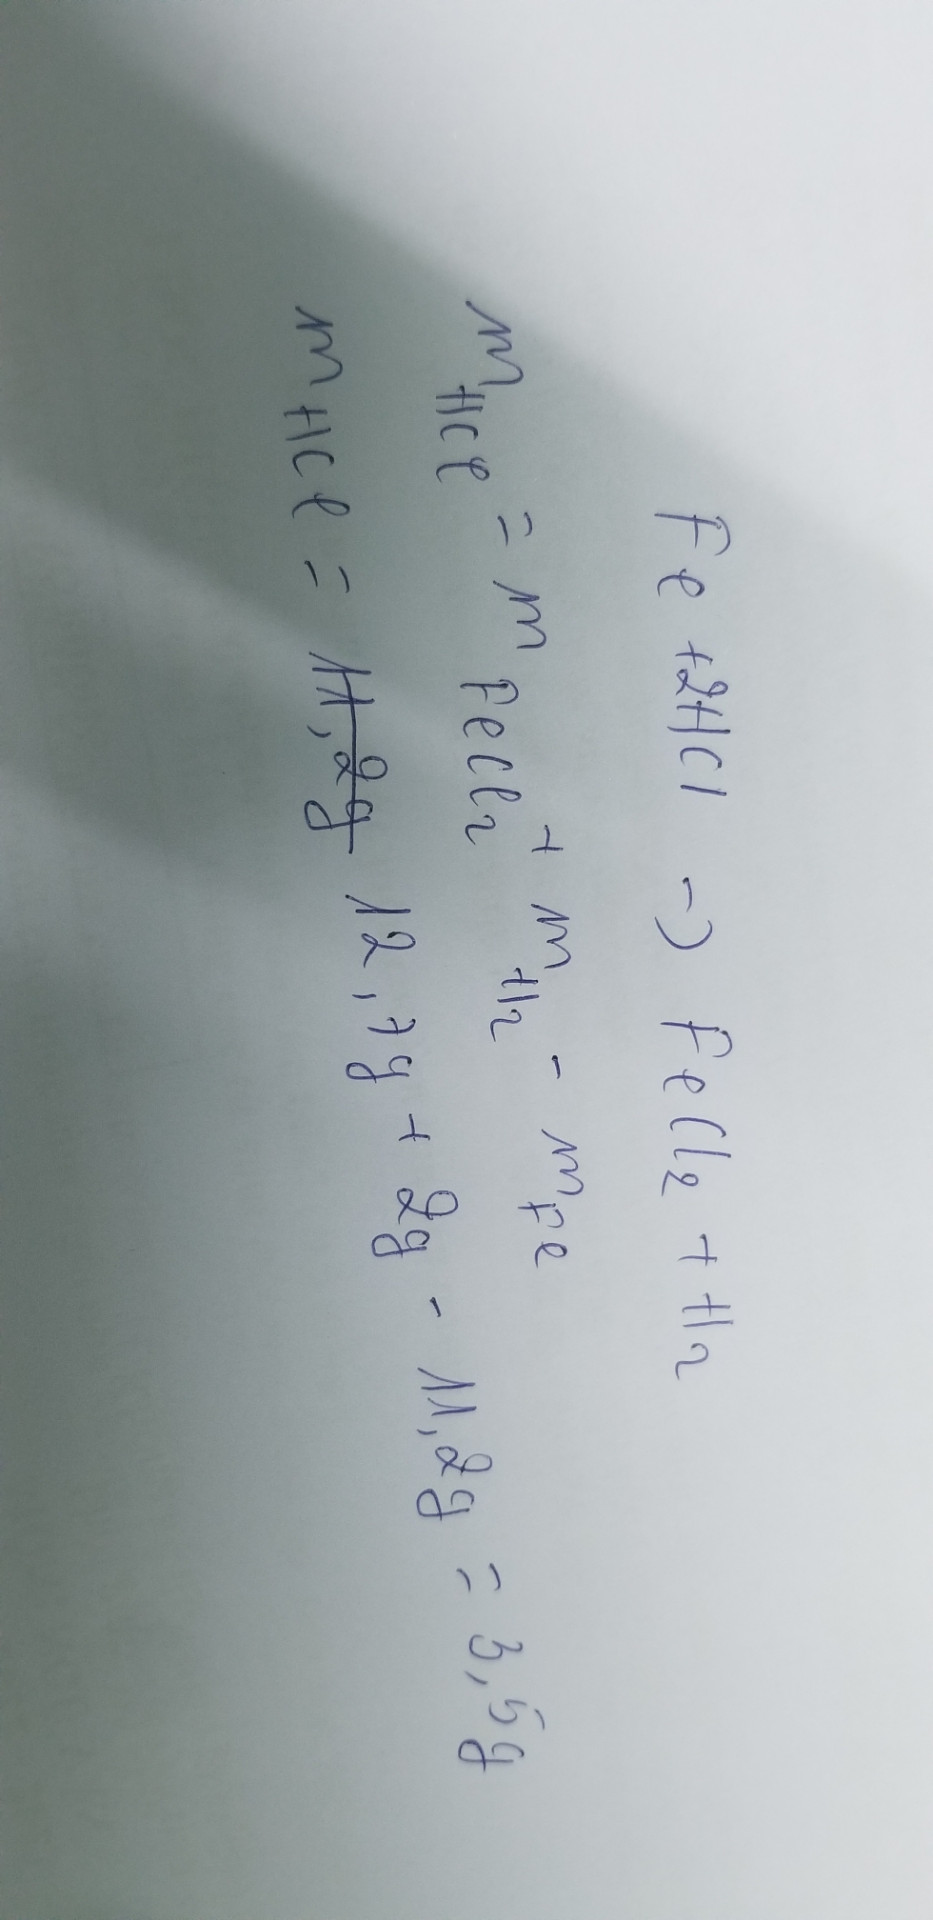 Fe + 2HCl -> FeCl2 + H2
mHCl = m FeCl2 + mH2 - mFe
mHCl = 11,2g 12,7g + 2g - 11,2g = 3,5g